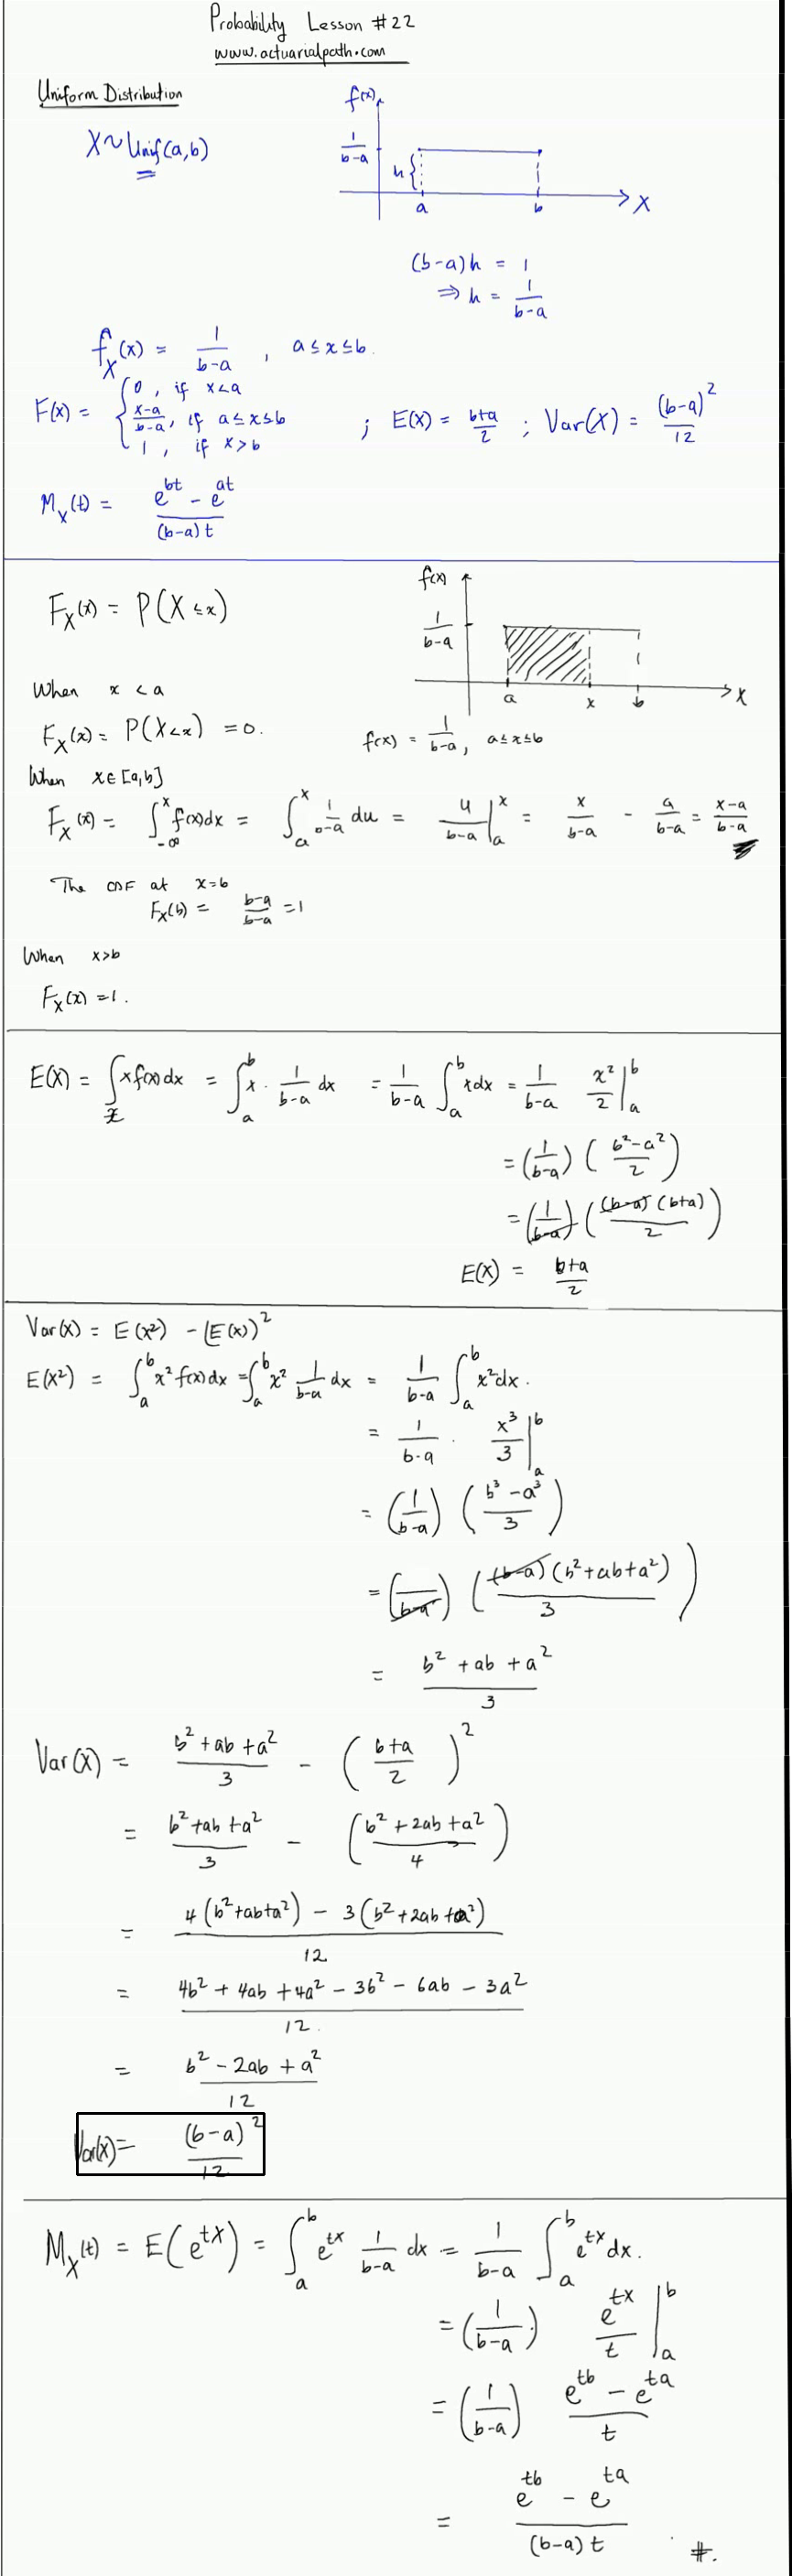 Probability Lesson #22
www.actuarialpath.com
Uniform Distribution
X ~ Unif(a,b)
f(x)
1/(b-a)
h {
a b X
(b-a)h = 1
⇒ h = 1/(b-a)
f_X(x) = 1/(b-a) , a ≤ x ≤ b.
F(x) = { 0, if x<a
(x-a)/(b-a), if a ≤ x ≤ b ; E(X) = (b+a)/2 ; Var(X) = (b-a)^2/12
1, if x>b
M_X(t) = (e^bt - e^at)/((b-a)t)
F_X(x) = P(X ≤ x)
f(x)
1/(b-a)
a x b X
f(x) = 1/(b-a), a ≤ x ≤ b
When x < a
F_X(x) = P(X<x) = 0.
When x ∈ [a,b]
F_X(x) = ∫_-∞^x f(x)dx = ∫_a^x 1/(b-a) du = u/(b-a) |_a^x = x/(b-a) - a/(b-a) = (x-a)/(b-a)
The CDF at x=b
F_X(b) = (b-a)/(b-a) = 1
When x>b
F_X(x) = 1.
E(X) = ∫_x x f(x) dx = ∫_a^b x · 1/(b-a) dx = 1/(b-a) ∫_a^b x dx = 1/(b-a) x^2/2 |_a^b
= (1/(b-a)) ((b^2-a^2)/2)
= (1/(b-a)) ((b-a)(b+a)/2)
E(X) = (b+a)/2
Var(X) = E(X^2) - (E(X))^2
E(X^2) = ∫_a^b x^2 f(x) dx = ∫_a^b x^2 1/(b-a) dx = 1/(b-a) ∫_a^b x^2 dx.
= 1/(b-a) · x^3/3 |_a^b
= (1/(b-a)) ((b^3-a^3)/3)
= (1/(b-a)) ((b-a)(b^2+ab+a^2)/3)
= (b^2+ab+a^2)/3
Var(X) = (b^2+ab+a^2)/3 - ((b+a)/2)^2
= (b^2+ab+a^2)/3 - ((b^2+2ab+a^2)/4)
= (4(b^2+ab+a^2) - 3(b^2+2ab+a^2))/12
= (4b^2+4ab+4a^2-3b^2-6ab-3a^2)/12.
= (b^2-2ab+a^2)/12
Var(x) = (b-a)^2/12
M_X(t) = E(e^tX) = ∫_a^b e^tx 1/(b-a) dx = 1/(b-a) ∫_a^b e^tx dx.
= (1/(b-a)) e^tx/t |_a^b
= (1/(b-a)) (e^tb - e^ta)/t
= (e^tb - e^ta)/((b-a)t) #.